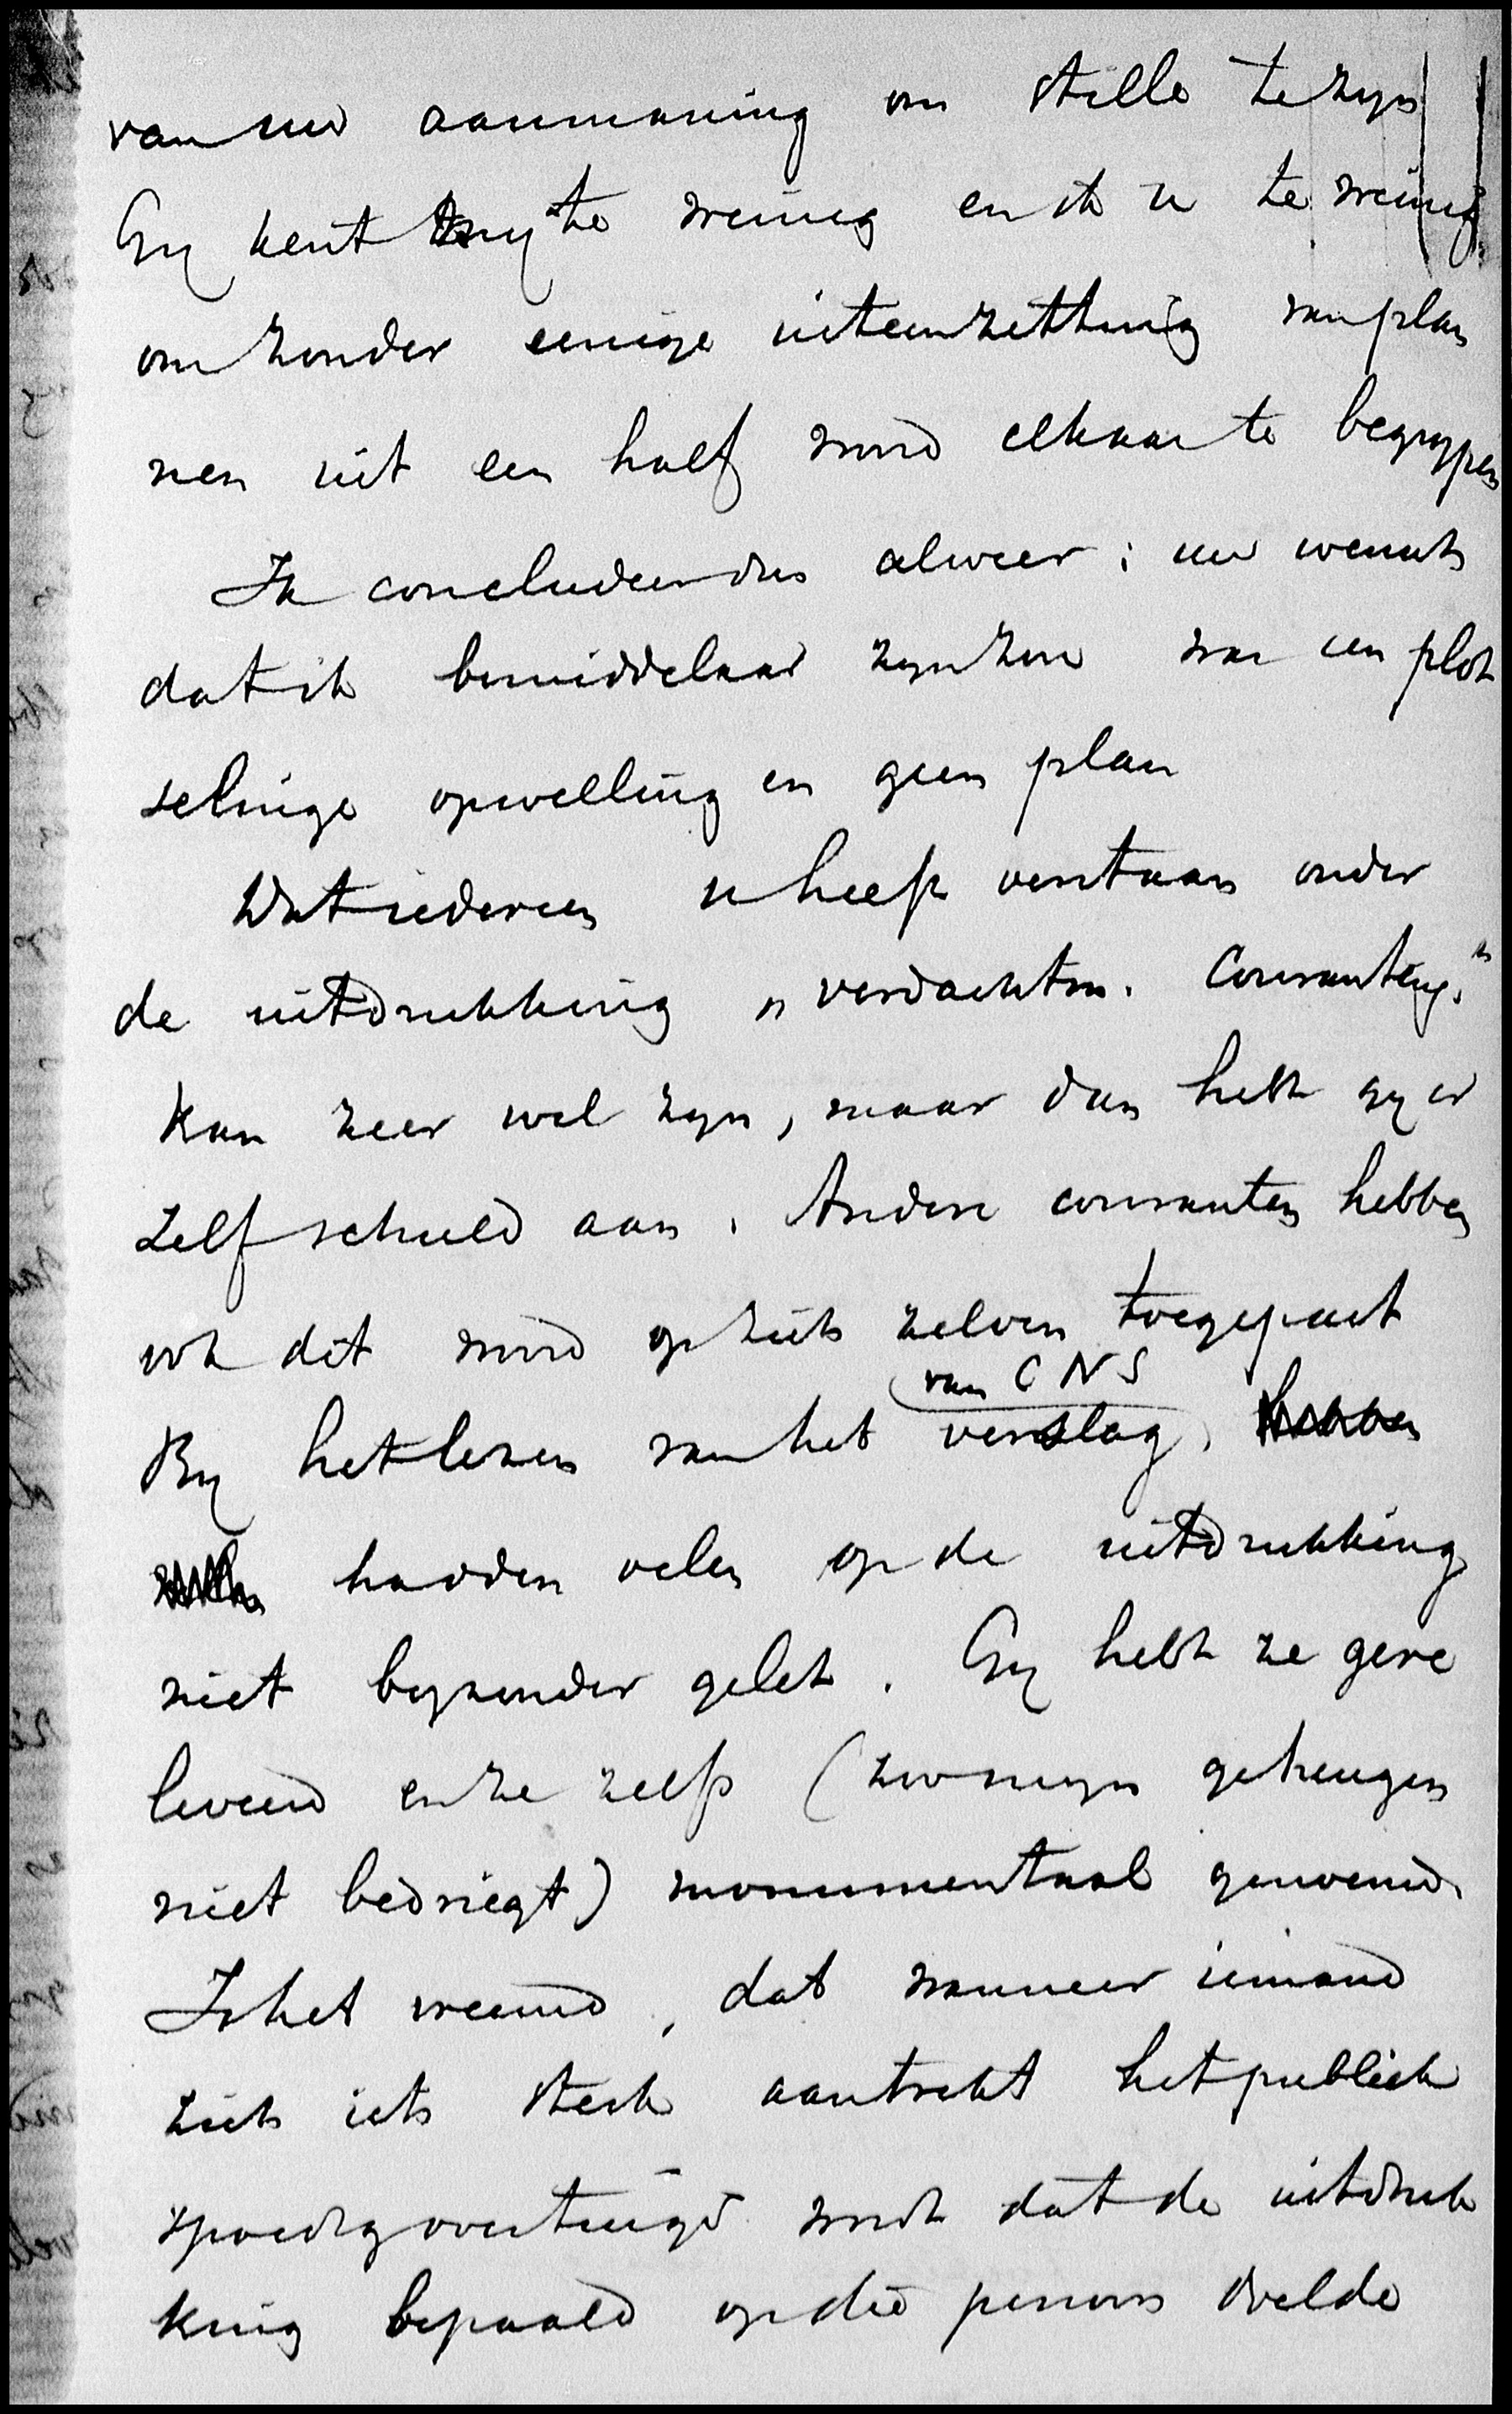 van uw aanmaning om stille te zyn
Gy kent my te weinig en ik u te weinig
om zonder eenige uiteenzetting van plan
nen uit een half woord elkaar te begrypen
Ik concludeer dus alweer: uw wensch
dat ik bemiddelaar zyn zou was een plot
selinge opwelling en geen plan
Wat iedereen u heeft verstaan onder
de uitdrukking „verdachtm. Courantenys."
kan zeer wel zyn, maar dan hebt gy er
zelf schuld aan. Andere couranten hebben
ook dit woord op zich zelven toegepast
van CNS
By het lezen van het verslag,
hadden velen op de uitdrukking
niet byzonder gelet. Gy hebt ze gere
leveerd en ze zelfs (zoo myn geheugen
niet bedriegt) monumentaal genoemd.
Is het vreemd, dat wanneer iemand
zich iets sterk aantrekt het publiek
spoedig overtuigd wordt dat de uitdruk
king bepaald op dié persoon doelde